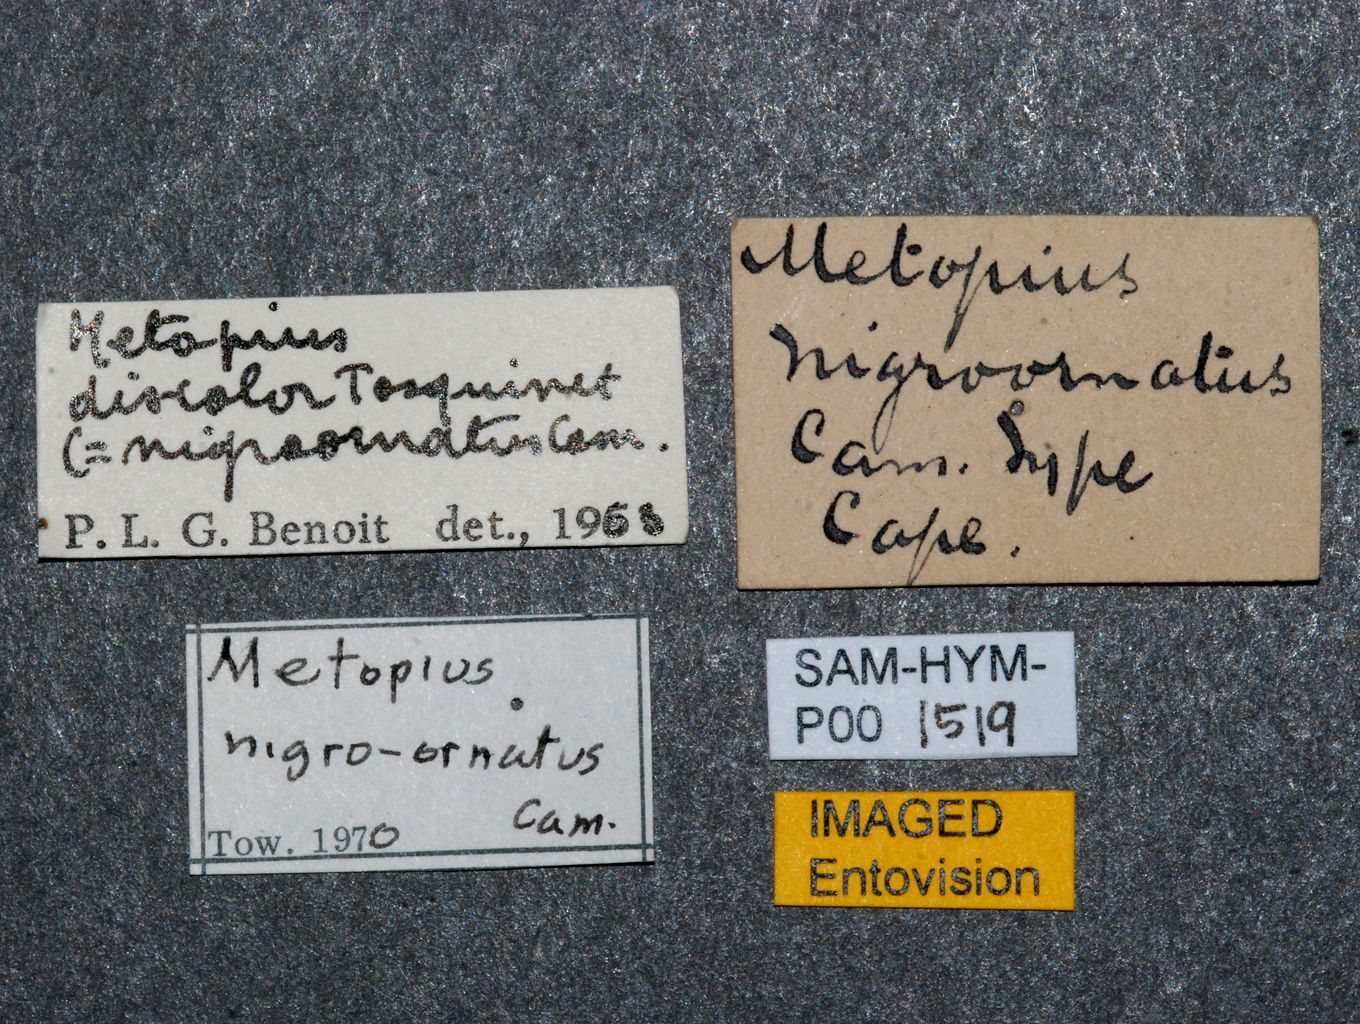 Metopius
discolor Tosquinet
(= nigroornatus Cam.
P. L. G. Benoit det., 1968
Metopius
nigroornatus
Cam. Type
Cape.
Metopius
nigro-ornatus
Cam.
Tow. 1970
SAM-HYM-
P00 1519
IMAGED
Entovision